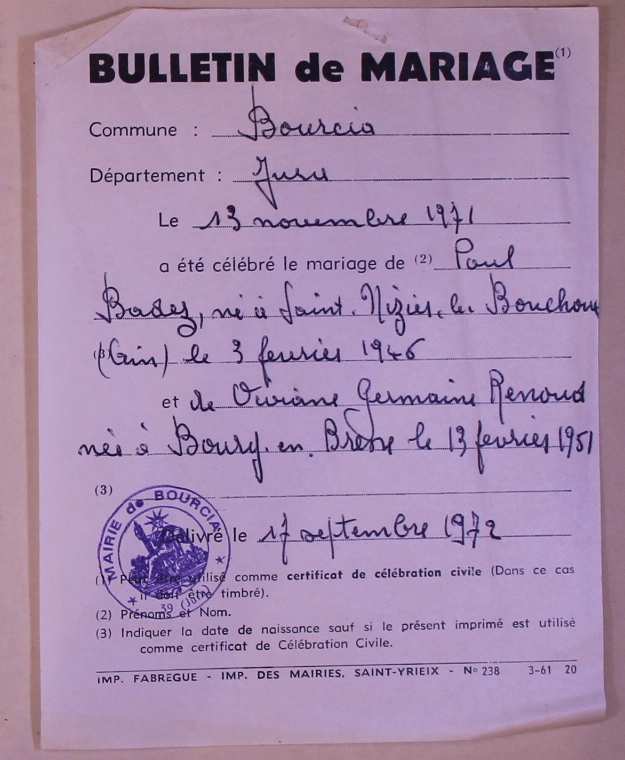 BULLETIN de MARIAGE (1)
Commune : Bourcia
Département : Jura
Le 13 novembre 1971
a été célébré le mariage de (2) Paul
Badez, né à Saint. Nizier. le. Bouchoux
(Ain) le 3 fevrier 1946
et de Viviane Germaine Renoud
née à Bourg. en. Bresse le 13 fevrier 1951
(3)
Délivré le 17 septembre 1972
MAIRIE de BOURCIA
39 (Jura)
(1) Peut être utilisé comme certificat de célébration civile (Dans ce cas
il doit être timbré).
(2) Prénoms et Nom.
(3) Indiquer la date de naissance sauf si le présent imprimé est utilisé
comme certificat de Célébration Civile.
IMP. FABRÈGUE - IMP. DES MAIRIES, SAINT-YRIEIX - No 238 3-61 20